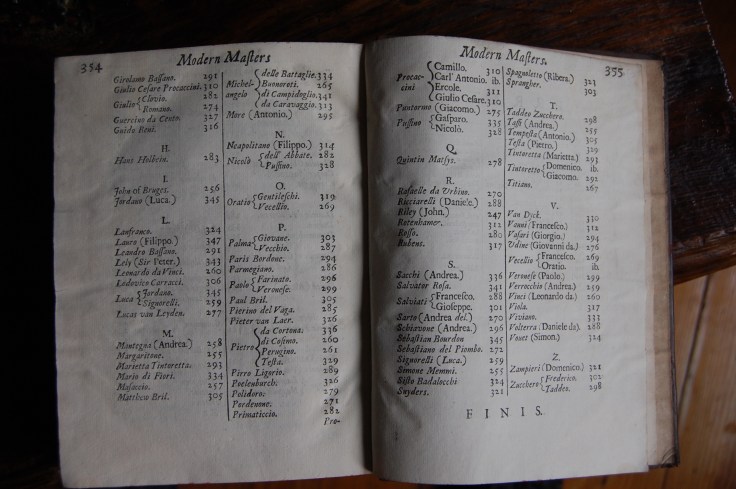 354
Modern Masters
Girolamo Bassano. 291
Giulio Cesare Procaccini. 310
Giulio { Clovio. 282
Romano. 274
Guercino da Cento. 327
Guido Reni. 316
H.
Hans Holbein. 283
I.
John of Bruges. 256
Jordano (Luca.) 345
L.
Lanfranco. 324
Lauro (Filippo.) 347
Leandro Bassano. 291
Lely (Sir Peter.) 343
Leonardo da Vinci. 260
Lodovico Carracci. 306
Luca { Jordano. 345
Signorelli. 259
Lucas van Leyden. 277
M.
Mantegna (Andrea.) 258
Margaritone. 255
Marietta Tintoretta. 293
Mario di Fiori. 334
Masaccio. 257
Matthew Bril. 305
Michel-angelo { delle Battaglie. 334
Buonaroti. 265
di Campidoglie. 341
da Caravaggio. 313
More (Antonio.) 295
N.
Neapolitano (Filippo.) 314
Nicolò { dell' Abbate. 282
Pussino. 328
O.
Oratio { Gentileschi. 319
Vecellio. 269
P.
Palma { Giovane. 303
Vecchio. 287
Paris Bordone. 294
Parmegiano. 286
Paolo { Farinato. 296
Veronese. 299
Paul Bril. 305
Pierino del Vaga. 285
Pieter van Laer. 326
Pietro { da Cortona. 336
di Cosimo. 260
Perugino. 261
Testa. 329
Pirro Ligorio. 289
Poelenburch. 326
Polidoro. 279
Pordenone. 271
Primaticcio. 282
Pro-
Modern Masters.
355
Procaccini { Camillo. 310
Carl' Antonio. ib.
Ercole. 311
Giulio Cesare. 310
Puntormo (Giacomo.) 275
Pussino { Gasparo. 335
Nicolò. 328
Q.
Quintin Matsys. 278
R.
Rafaelle da Urbino. 270
Ricciarelli (Daniele.) 288
Riley (John.) 247
Rotenhamer. 312
Rosso. 280
Rubens. 317
S.
Sacchi (Andrea.) 336
Salvator Rosa. 341
Salviati { Francesco. 288
Gioseppe. 301
Sarto (Andrea del.) 270
Schiavone (Andrea.) 296
Sebastian Bourdon 345
Sebastiano del Piombo. 272
Signorelli (Luca.) 259
Simone Memmi. 255
Sisto Badalocchi 324
Snyders. 321
Spagnoletto (Ribera.) 323
Sprangher. 303
T.
Taddeo Zucchero. 298
Tassi (Andrea.) 255
Tempesta (Antonio.) 305
Testa (Pietro.) 329
Tintoretta (Marietta.) 293
Tintoretto { Domenico. ib.
Giacomo. 292
Titiano. 267
V.
Van Dyck. 330
Vanni (Francesco.) 312
Vasari (Giorgio.) 294
Udine (Giovanni da.) 276
Vecellio { Francesco. 269
Oratio. ib.
Veronese (Paolo.) 299
Verrocchio (Andrea.) 259
Vinci (Leonardo da) 260
Viola. 317
Viviano. 333
Volterra (Daniele da). 288
Vouet (Simon.) 324
Z.
Zampieri (Domenico.) 321
Zucchero { Frederico. 302
Taddeo. 298
FINIS.